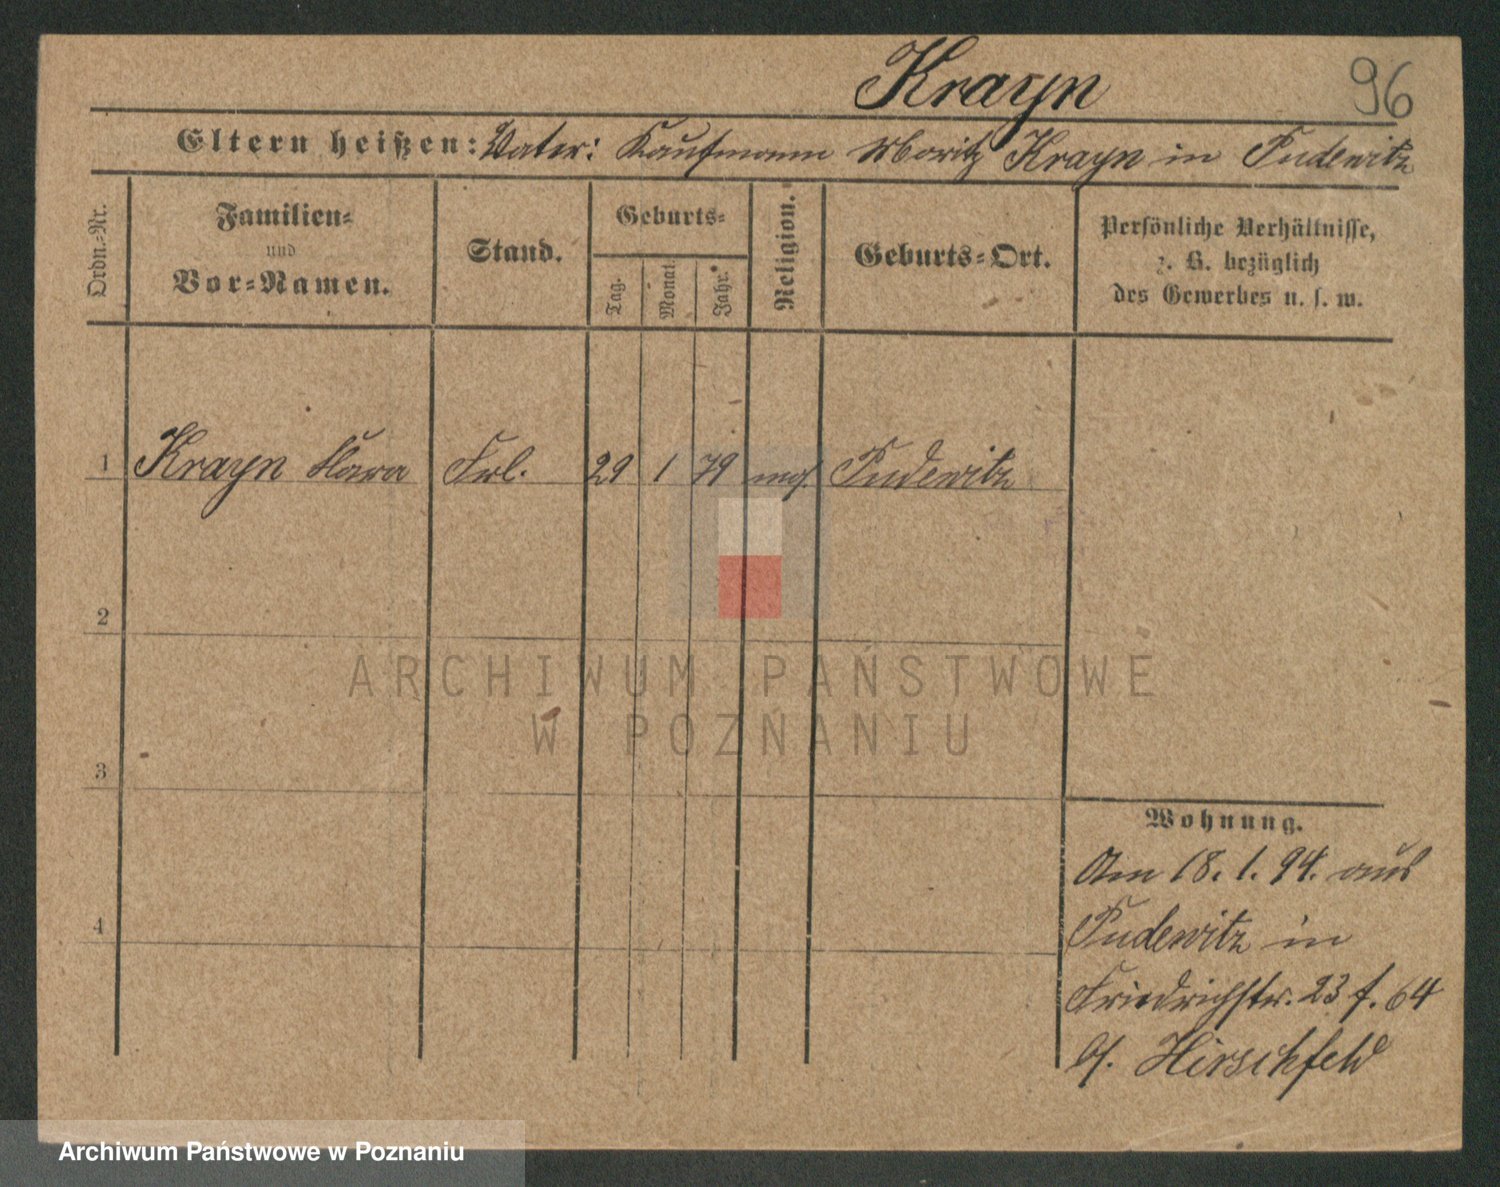 Krayn
96
Eltern heißen: Vater: Kaufmann Moritz Krayn in Pudewitz
Ordn.-Nr.
Familien-
und
Vor-Namen.
Stand.
Geburts-
Tag.
Monat.
Jahr.
Religion.
Geburts-Ort.
Persönliche Verhältnisse,
z. B. bezüglich
des Gewerbes u. s. w.
1 Krayn Klara Frl. 29 1 79 mos. Pudewitz
2
3
4
Wohnung.
Am 18. 1. 94. aus
Pudewitz in
Friedrichstr. 23 f. 64
b/. Hirschfeld
ARCHIWUM PAŃSTWOWE
W POZNANIU
Archiwum Państwowe w Poznaniu